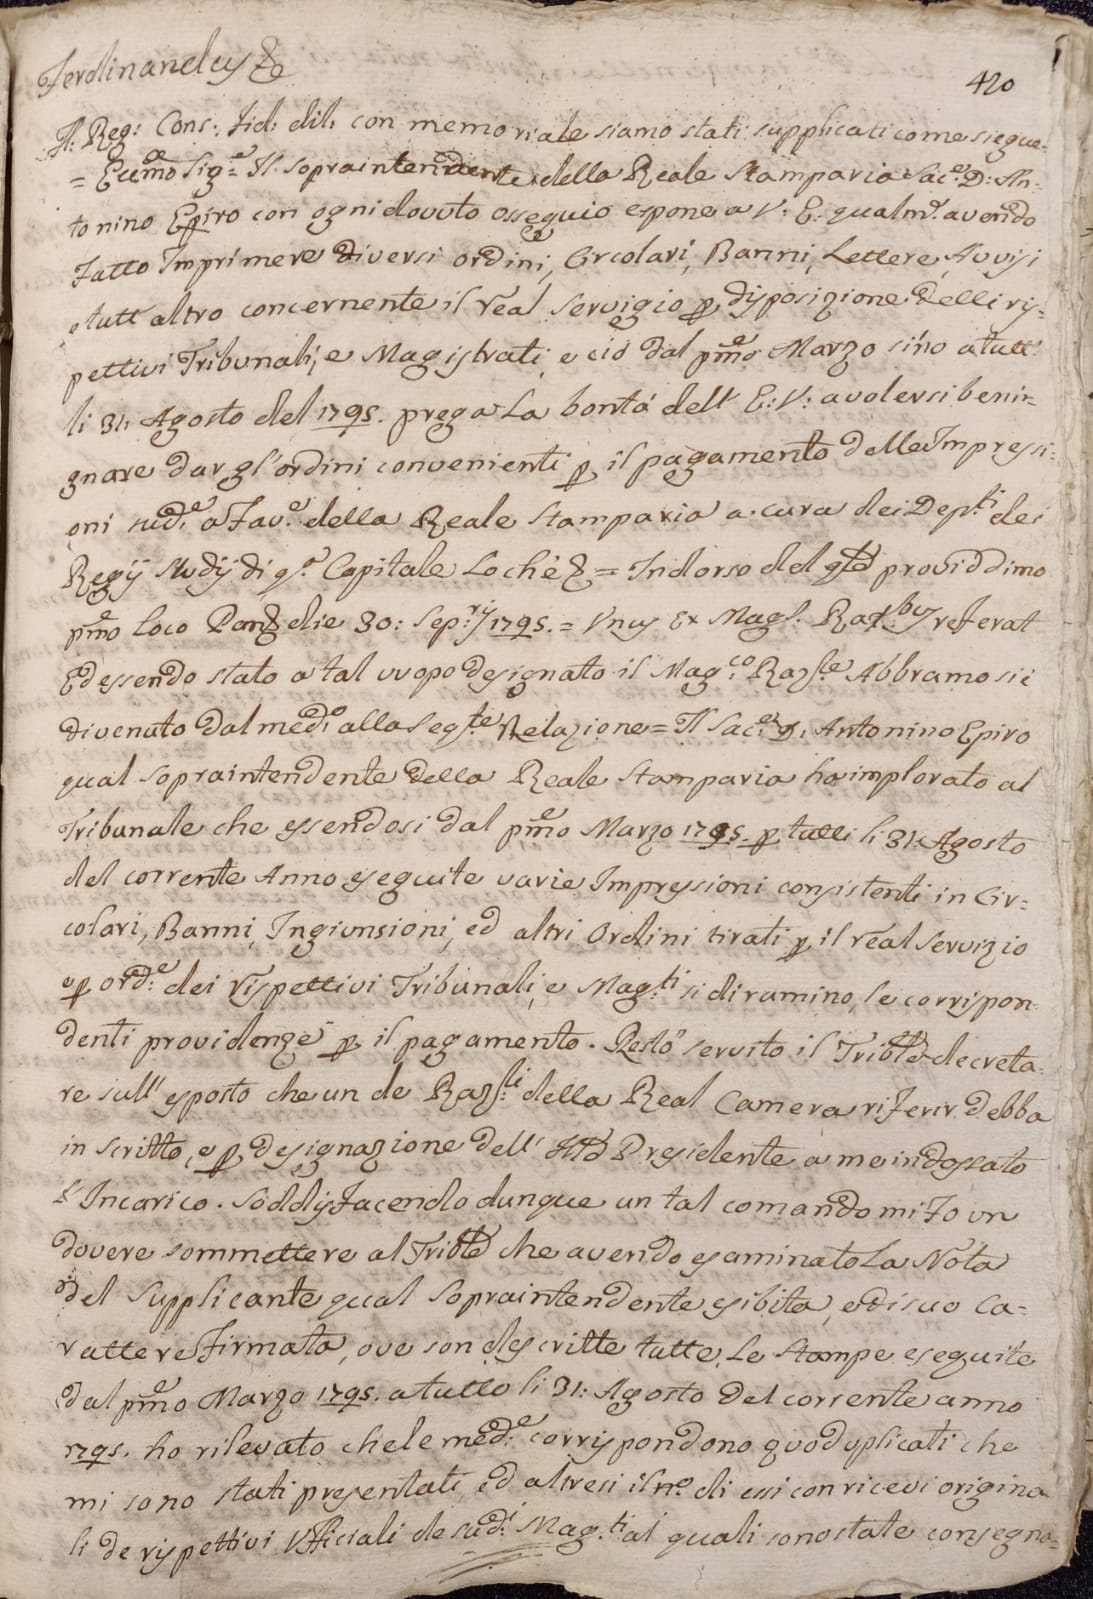 Ferdinandus &c
420
Ill: Reg: Cons: Fid: dil: con memoriale siamo stati supplicati come siegue =
= Eccmo Sigre = Il sopraintendente della Reale Stamparia Sace D: An-
tonino Epiro con ogni dovuto ossequio espone a V: E: qualme avendo
fatto Imprimere diversi ordini, Circolari, Banni, Lettere, Avvisi
e tutt'altro concernente il real servigio p disposizione delli ris-
pettivi Tribunali, e Magistrati, e ciò dal pmo Marzo sino a tutt'
li 31 Agosto del 1795. prega La bontà dell' E: V: a volersi benin-
gnare dar gl'ordini convenienti p il pagamento delle Impressi-
oni sude a Fave della Reale Stamparia a cura dei Depti dei
Regij Studij di qsa Capitale Loché & = Indorso del qle providdimo
pmo loco Pan: die 30: Sepris 1795. = Unus Ex Mags. Raslibus referat
Ed essendo stato a tal uvopo designato il Magco Razle Abbramo si è
divenuto dal medo alla Segte Relazione = Il Sace D. Antonino Epiro
qual sopraintendente della Reale Stamparia ha implorato al
Tribunale che essendosi dal pmo Marzo 1795. p tutti li 31: Agosto
del corrente Anno eseguite varie Impressioni consistenti in Cir-
colari, Banni, Ingiunsioni, ed altri Ordini tirati p il real servizio
e p orde dei rispettivi Tribunali, e Magti si diramino, le corrispon-
denti providenze p il pagamento. Restò servito il Trible decreta-
re sull'esposto che un de Razli della Real Camera riferir debba
in scritto, e p designazione dell' Ille Presidente a me indossato
l'Incarico. Soddisfacendo dunque un tal comando mi fo un
dovere sommettere al Trible che avendo esaminato La Nota
del Supplicante qual Sopraintendente esibita, e di suo Ca-
rattere Firmata, ove son descritte tutte Le Stampe eseguite
dal pmo Marzo 1795. a tutto li 31: Agosto del corrente anno
1795. ho rilevato che le mede corrispondono quoduplicati che
mi sono stati presentati, ed altresi il no di essi con ricevi origina-
li de rispettivi Ufficiali de sudi Magti ai quali sono state consegna-